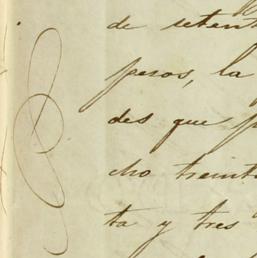 de setent
pesos, la
des que p
cho treint
ta y tres